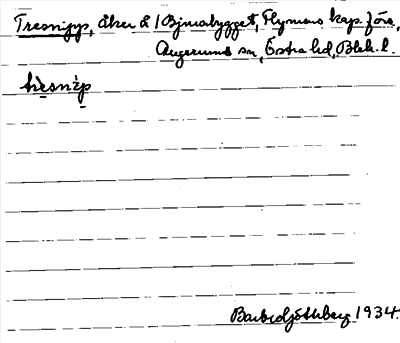 Tresnipp, åker å 1 Bjurabygget, Flymens kap. förs,
Augerums sn, Östra hd, Blek. l.
trèsnìp
1934.